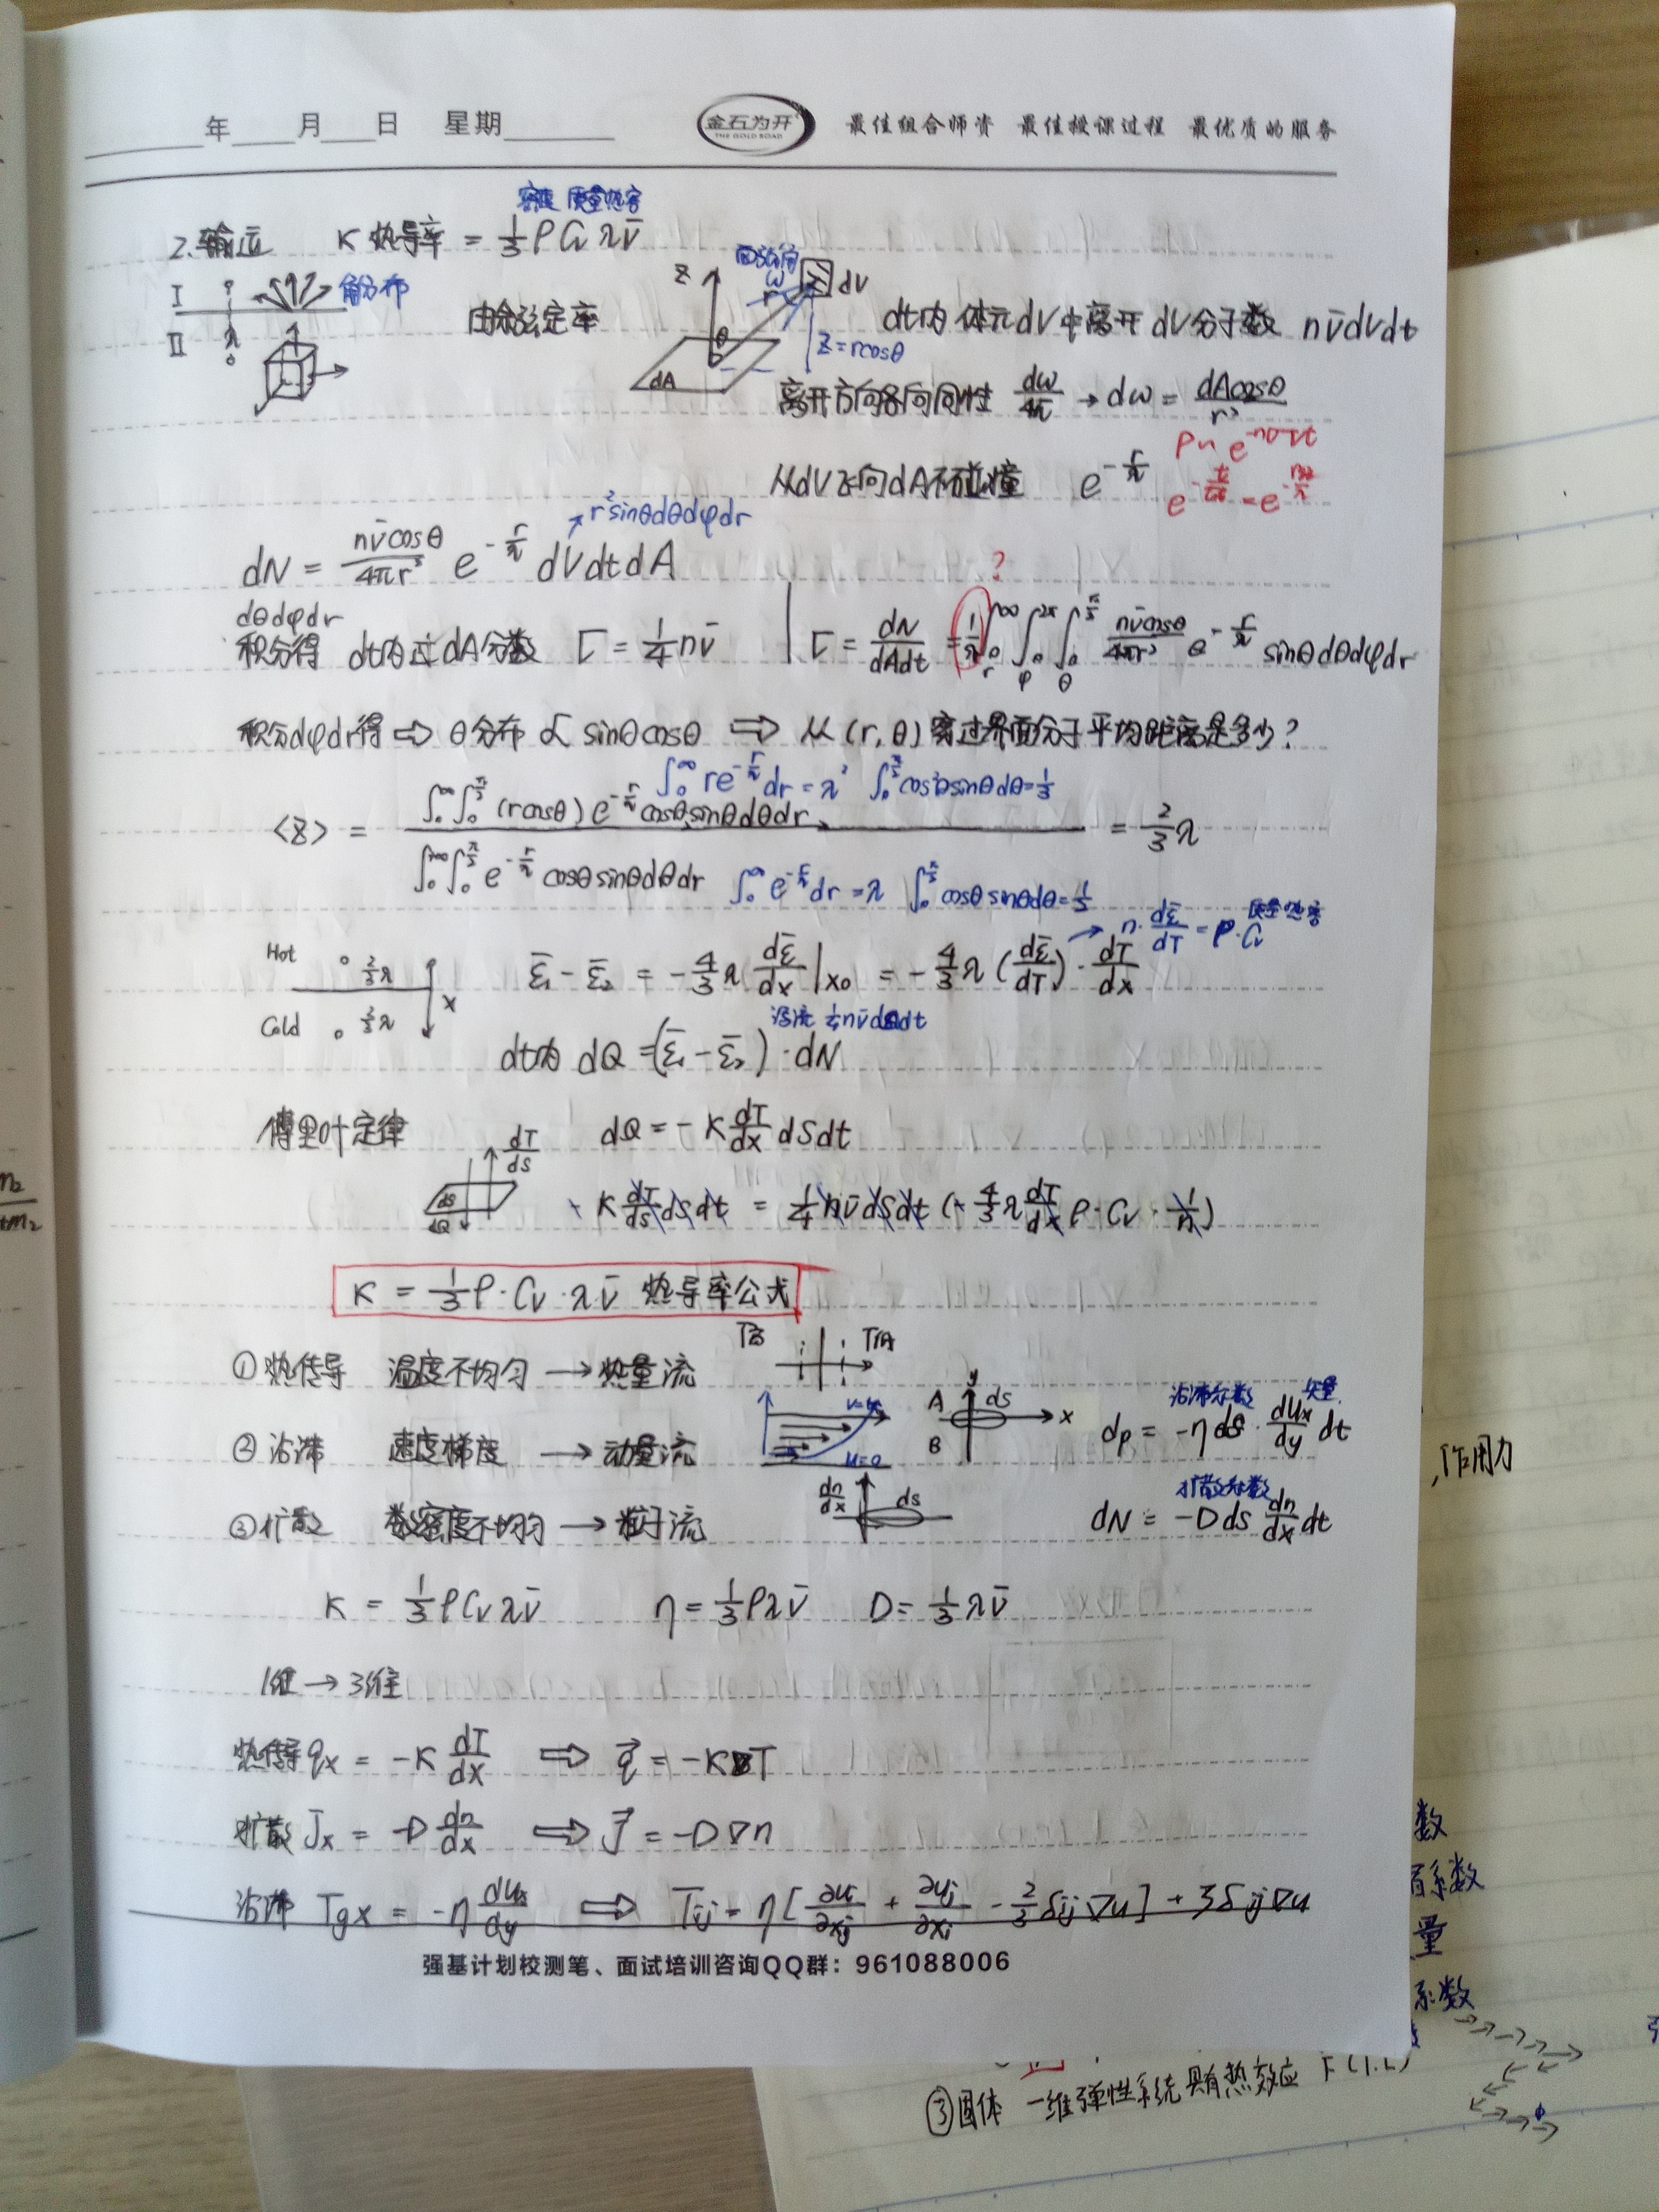 年 月 日 星期
金石为开
THE GOLD ROAD
最佳组合师资 最佳授课过程 最优质的服务
密度 质量热容
2.输运 κ 热导率 = 1/3 ρ Cv λ v̄
I
II
角分布
由余弦定率
Z
θ
dA
r
ω
dV
Z=rcosθ
dt内 体元dV中离开dV分子数 nv̄dVdt
离开方向各向同性 dω/4π → dω = dAcosθ/r²
从dV飞向dA不碰撞 e^(-r/λ)
r²sinθdθdφdr
dN = nv̄cosθ/4πr² e^(-r/λ) dVdtdA
?
dθdφdr
积分得 dt内过dA分数 Γ = 1/4 nv̄
Γ = dN/dAdt = 1/λ ∫₀^∞ ∫₀^2π ∫₀^(π/2) nv̄cosθ/4πr² e^(-r/λ) sinθdθdφdr
r φ θ
积分dφdr得 ⇒ θ分布 ∝ sinθcosθ ⇒ 从(r,θ)穿过界面分子平均距离是多少?
∫₀^∞ re^(-r/λ)dr = λ² ∫₀^(π/2) cos²θsinθdθ=1/3
<Z> = ∫₀^∞∫₀^(π/2)(rcosθ)e^(-r/λ)cosθsinθdθdr / ∫₀^∞∫₀^(π/2) e^(-r/λ) cosθsinθdθdr = 2/3 λ
∫₀^∞ e^(-r/λ)dr = λ ∫₀^(π/2) cosθsinθdθ=1/2
n·dε̄/dT = ρ·Cv 质量热容
Hot 2/3λ
Cold 2/3λ
x
ε̄₁ - ε̄₂ = -4/3 λ dε̄/dx |x₀ = -4/3 λ (dε̄/dT)·dT/dx
dt内 dQ = (ε̄₁-ε̄₂)·dN
傅里叶定律 dQ = -κ dT/dx dSdt
dT/ds
dS
dQ
-κ dT/ds dsdt = 1/4 nv̄dsdt (-4/3 λ dT/dx ρ·Cv·1/n)
κ = 1/3 ρ·Cv·λv̄ 热导率公式
①热传导 温度不均匀 → 热量流
T高 T低
②沾滞 速度梯度 → 动量流
u=0
A
B
y
x
ds
沾滞系数 矢量
dp = -η ds·dux/dy dt
③扩散 数密度不均匀 → 粒子流
dn/dx
ds
扩散系数
dN = -D ds dn/dx dt
κ = 1/3 ρCvλv̄ η = 1/3 ρλv̄ D = 1/3 λv̄
1维 → 3维
热传导 qx = -κ dT/dx ⇒ q⃗ = -κ∇T
扩散 Jx = -D dn/dx ⇒ J⃗ = -D∇n
沾滞 Tyx = -η dux/dy ⇒ Tij = η[∂ui/∂xj + ∂uj/∂xi - 2/3 δij∇u] + ζδij∇u
强基计划校测笔、面试培训咨询QQ群：961088006
,作用力
数
系数
量
系数
③固体 一维弹性系统具有热效应